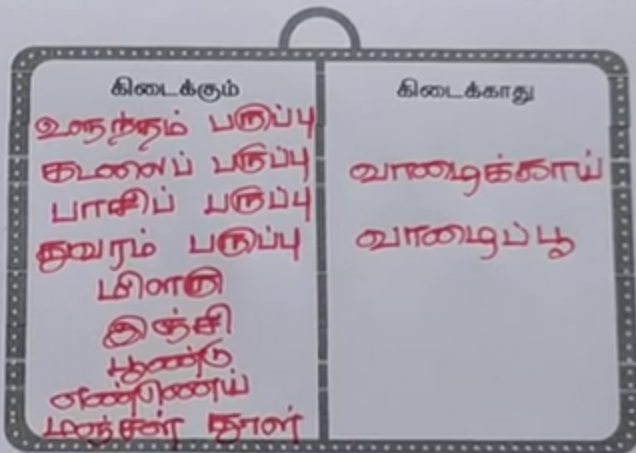 கிடைக்கும்
உளுந்தம் பருப்பு
கடலைப் பருப்பு
பாசிப் பருப்பு
துவரம் பருப்பு
மிளகு
இஞ்சி
பூண்டு
எண்ணெய்
மஞ்சள் தூள்
கிடைக்காது
வாழைக்காய்
வாழைப்பூ